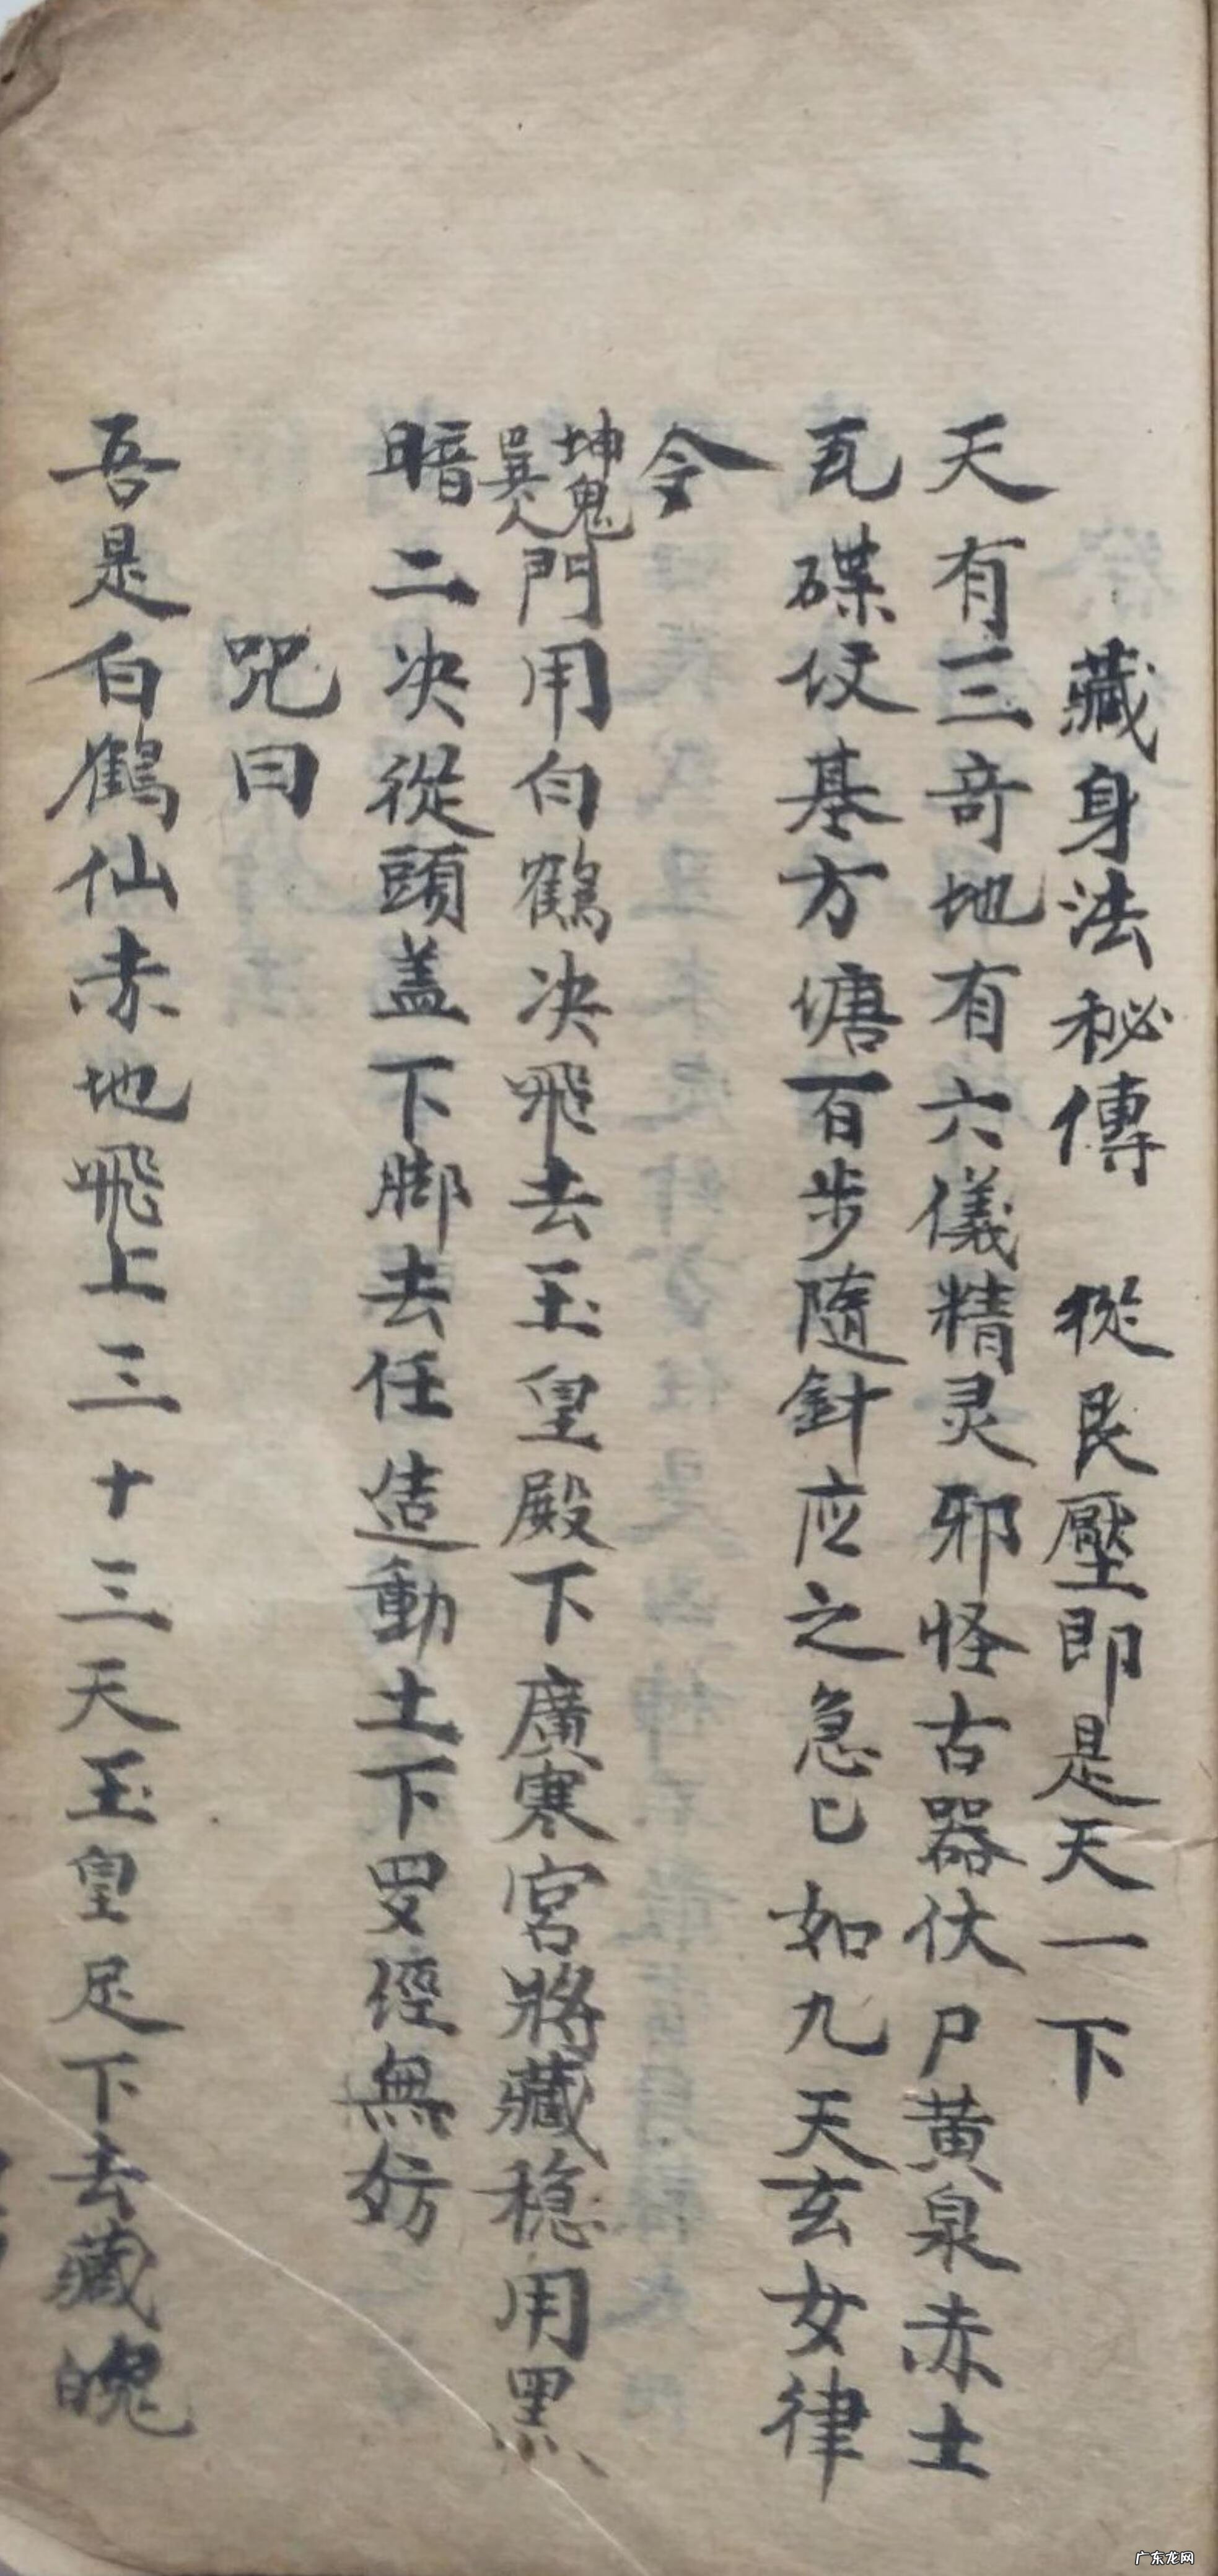 藏身法秘傳　從艮壓即是天一下
天有三奇地有六儀精灵邪怪古器伏尸黄泉赤土
瓦碟伩基方塘百步隨針应之急已如九天玄女律
令
坤鬼
巽人
門用白鶴决飛去玉皇殿下廣寒宮將藏穏用黑
暗二决從頭盖下脚去任造動土下罗經無妨
咒曰
吾是白鶴仙赤地飛上三十三天玉皇足下去藏魄
广东龙网